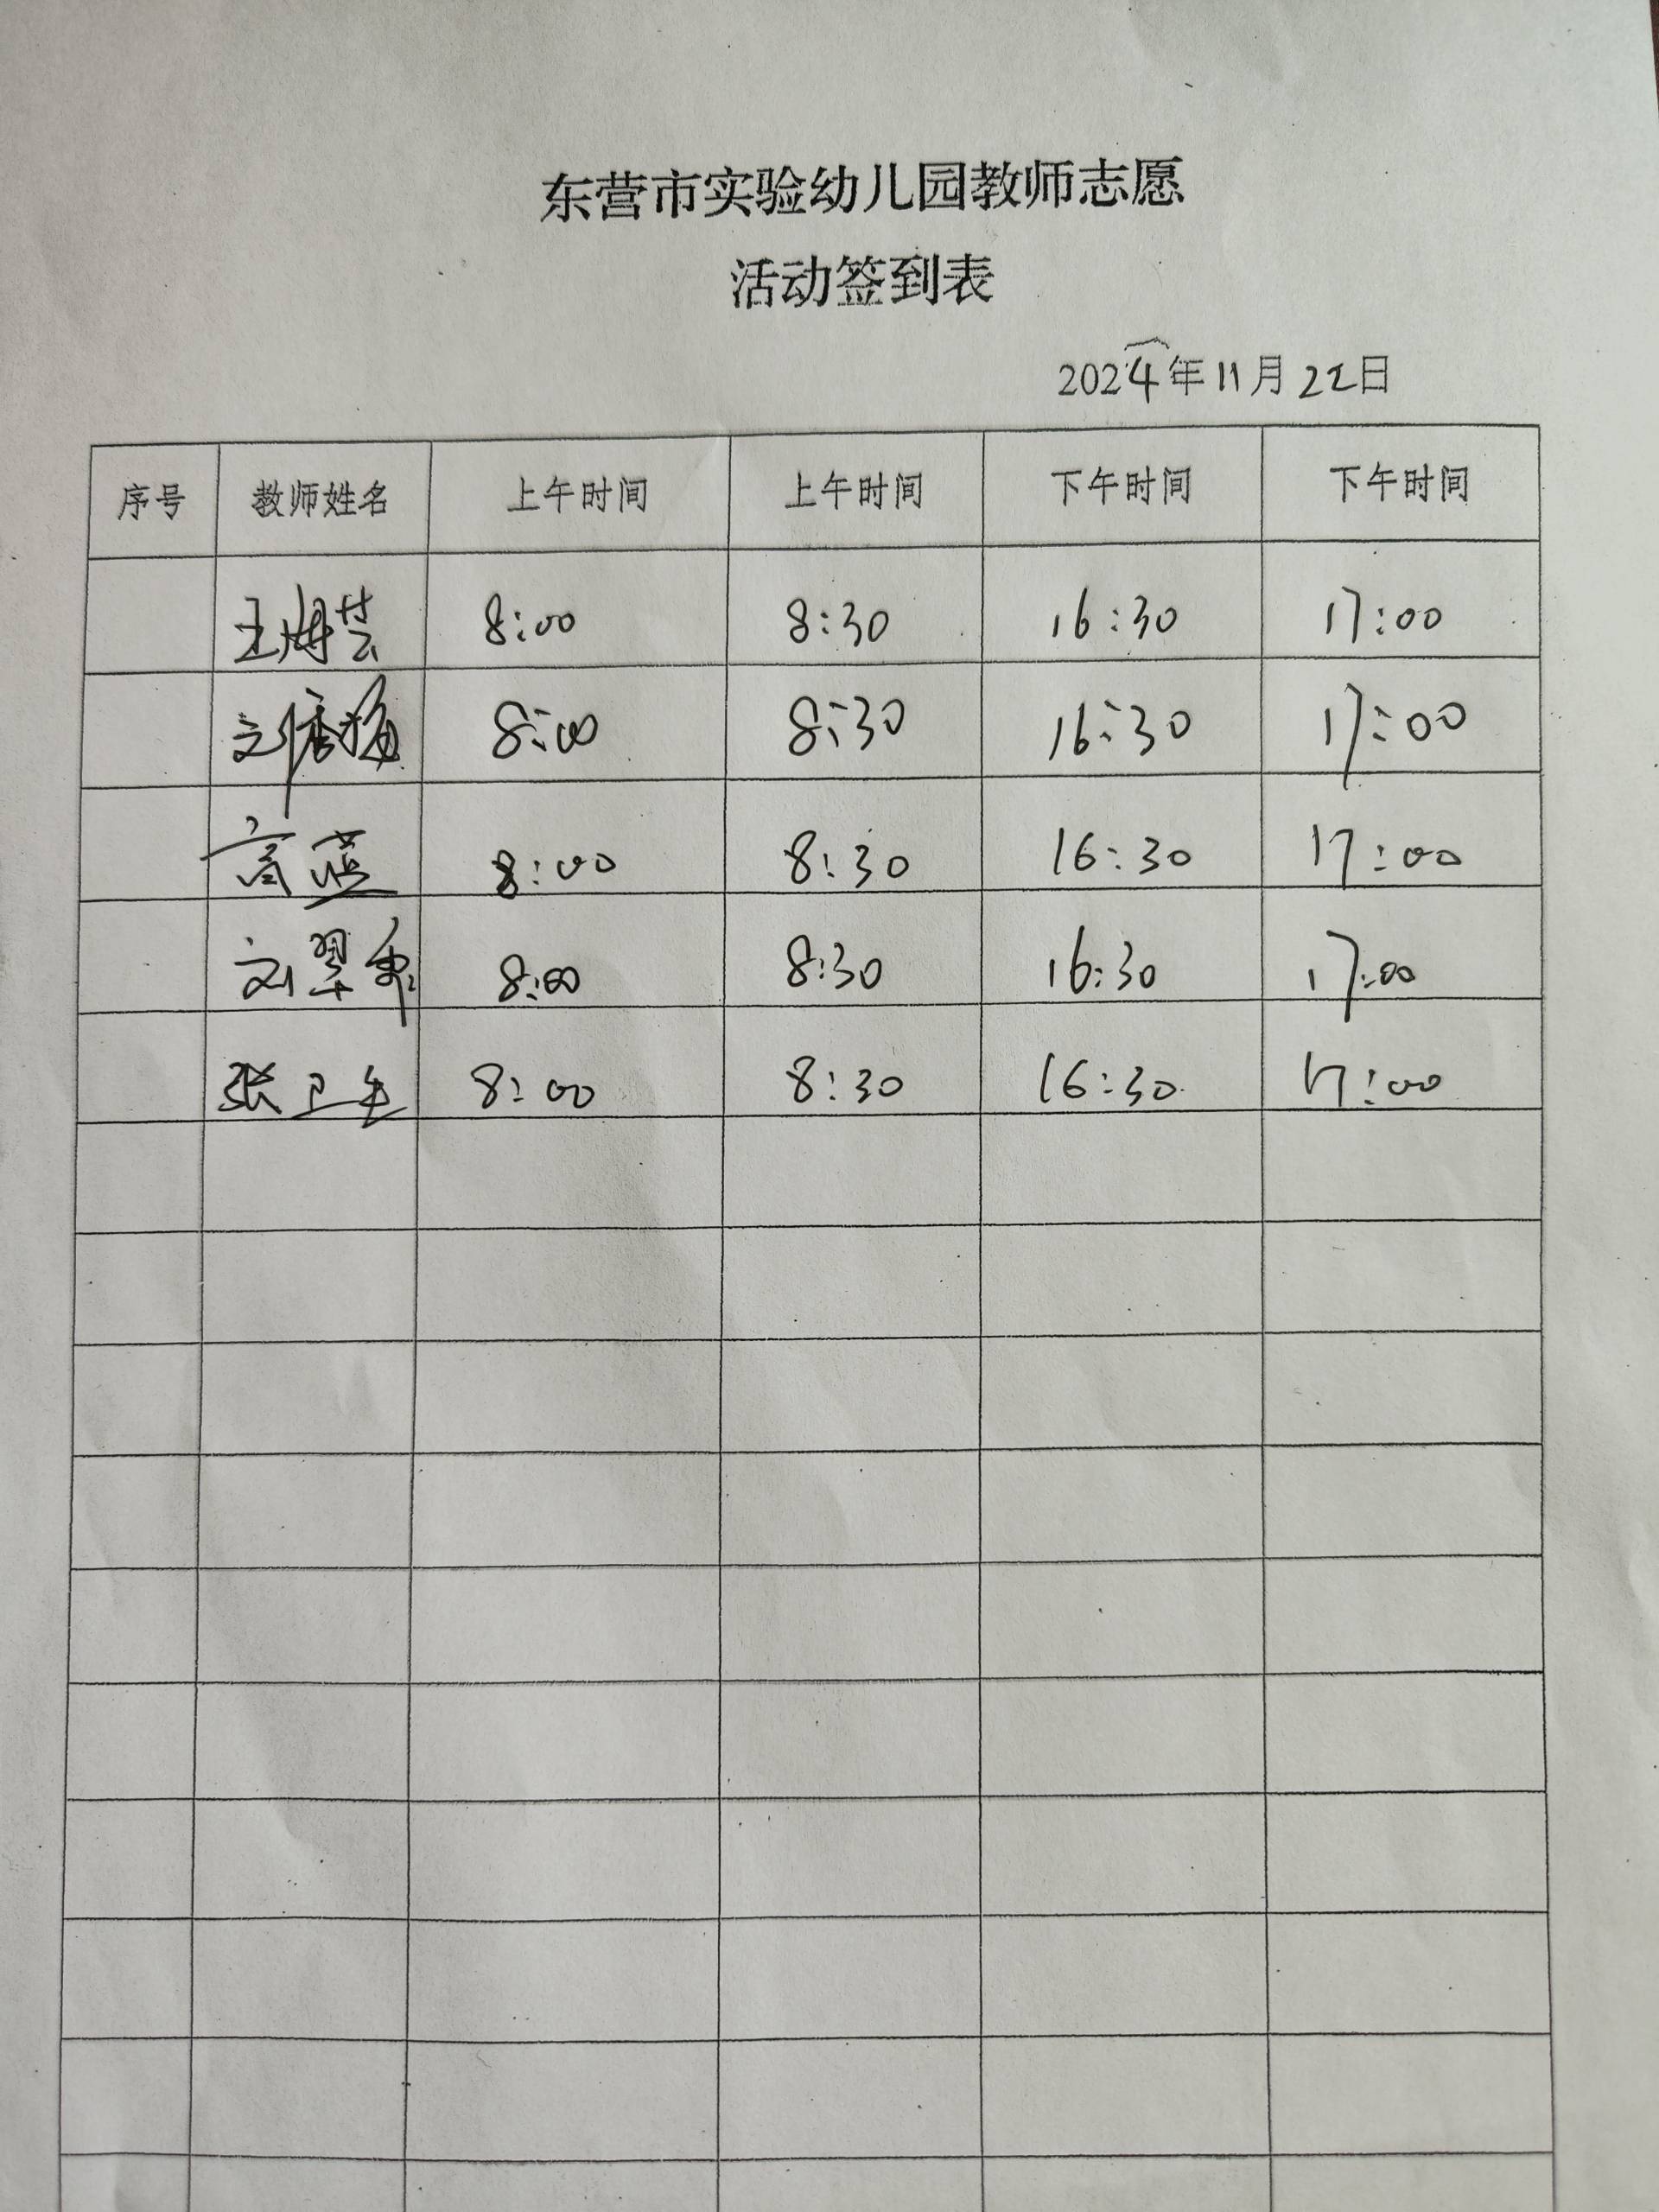 东营市实验幼儿园教师志愿
活动签到表
2024年11月22日
序号 教师姓名 上午时间 上午时间 下午时间 下午时间
王海芸 8:00 8:30 16:30 17:00
8:00 8:30 16:30 17:00
高蓝 8:00 8:30 16:30 17:00
刘翠 8:00 8:30 16:30 17:00
张卫 8:00 8:30 16:30 17:00